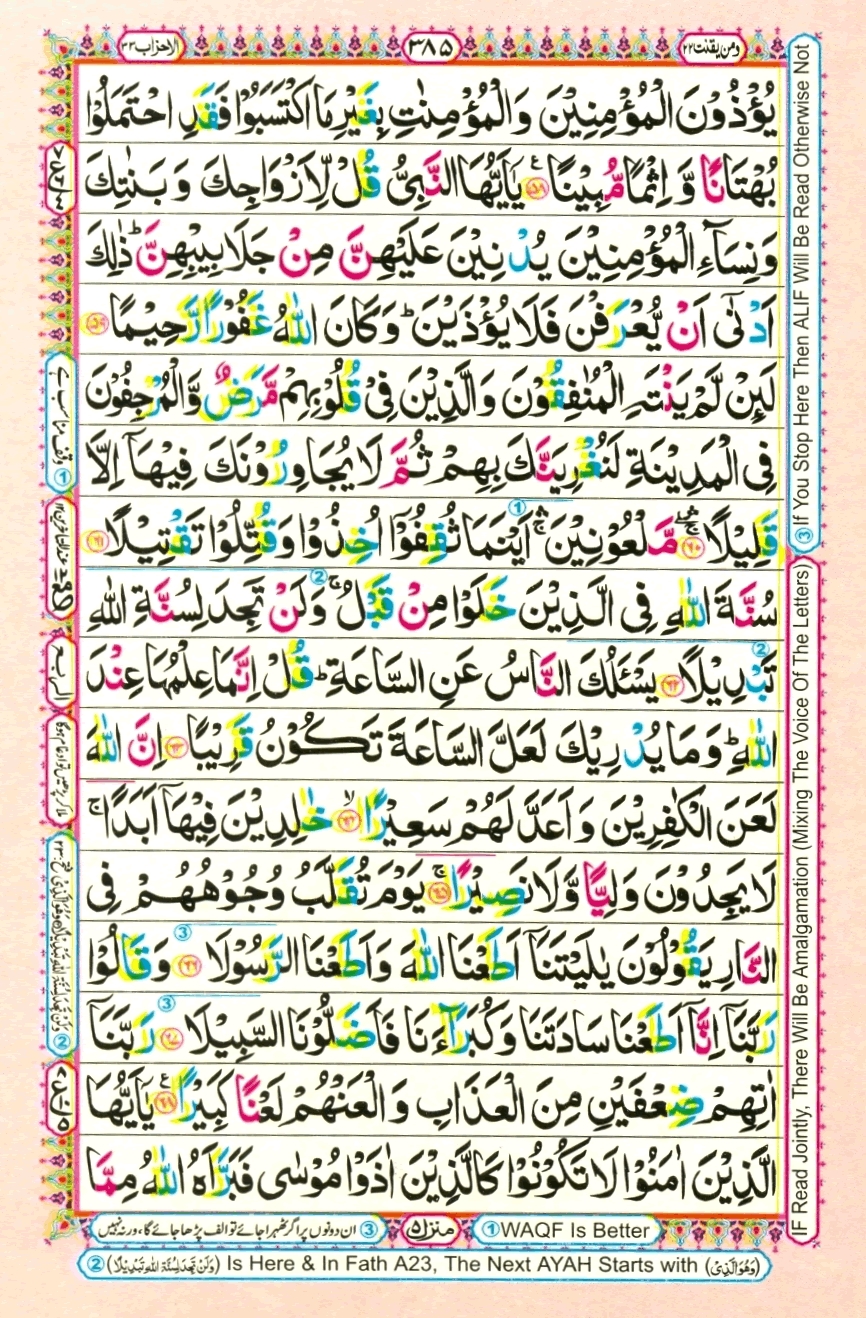 ومن يقنت ٢٢
٣٨٥
الاحزاب ٣٣
يُؤْذُوْنَ الْمُؤْمِنِيْنَ وَالْمُؤْمِنٰتِ بِغَيْرِ مَا اكْتَسَبُوْا فَقَدِ احْتَمَلُوْا
بُهْتَانًا وَّ اِثْمًا مُّبِيْنًا ۠﴿۵۸﴾ يٰۤاَيُّهَا النَّبِىُّ قُلْ لِّاَزْوَاجِكَ وَ بَنٰتِكَ
وَنِسَآءِ الْمُؤْمِنِيْنَ يُدْنِيْنَ عَلَيْهِنَّ مِنْ جَلَابِيْبِهِنَّ ؕ ذٰلِكَ
اَدْنٰٓى اَنْ يُّعْرَفْنَ فَلَا يُؤْذَيْنَ ؕ وَكَانَ اللّٰهُ غَفُوْرًا رَّحِيْمًا ﴿۵۹﴾
لَئِنْ لَّمْ يَنْتَهِ الْمُنٰفِقُوْنَ وَالَّذِيْنَ فِىْ قُلُوْبِهِمْ مَّرَضٌ وَّالْمُرْجِفُوْنَ
فِى الْمَدِيْنَةِ لَنُغْرِيَنَّكَ بِهِمْ ثُمَّ لَا يُجَاوِرُوْنَكَ فِيْهَاۤ اِلَّا
قَلِيْلًا ۛۖۚ ﴿۶۰﴾ مَّلْعُوْنِيْنَ ۛۚ اَيْنَمَا ثُقِفُوْۤا اُخِذُوْا وَقُتِّلُوْا تَقْتِيْلًا ﴿۶۱﴾
سُنَّةَ اللّٰهِ فِى الَّذِيْنَ خَلَوْا مِنْ قَبْلُ ۚ وَلَنْ تَجِدَ لِسُنَّةِ اللّٰهِ
تَبْدِيْلًا ﴿۶۲﴾ يَسْـَٔلُكَ النَّاسُ عَنِ السَّاعَةِ ؕ قُلْ اِنَّمَا عِلْمُهَا عِنْدَ
اللّٰهِ ؕ وَمَا يُدْرِيْكَ لَعَلَّ السَّاعَةَ تَكُوْنُ قَرِيْبًا ﴿۶۳﴾ اِنَّ اللّٰهَ
لَعَنَ الْكٰفِرِيْنَ وَاَعَدَّ لَهُمْ سَعِيْرًا ۙ﴿۶۴﴾ خٰلِدِيْنَ فِيْهَاۤ اَبَدًا ۚ
لَا يَجِدُوْنَ وَلِيًّا وَّلَا نَصِيْرًا ۚ﴿۶۵﴾ يَوْمَ تُقَلَّبُ وُجُوْهُهُمْ فِى
النَّارِ يَقُوْلُوْنَ يٰلَيْتَنَاۤ اَطَعْنَا اللّٰهَ وَاَطَعْنَا الرَّسُوْلَا ﴿۶۶﴾ وَقَالُوْا
رَبَّنَاۤ اِنَّاۤ اَطَعْنَا سَادَتَنَا وَكُبَرَآءَنَا فَاَضَلُّوْنَا السَّبِيْلَا ﴿۶۷﴾ رَبَّنَاۤ
اٰتِهِمْ ضِعْفَيْنِ مِنَ الْعَذَابِ وَالْعَنْهُمْ لَعْنًا كَبِيْرًا ۠﴿۶۸﴾ يٰۤاَيُّهَا
الَّذِيْنَ اٰمَنُوْا لَا تَكُوْنُوْا كَالَّذِيْنَ اٰذَوْا مُوْسٰى فَبَرَّاَهُ اللّٰهُ مِمَّا
③ If You Stop Here Then ALIF Will Be Read Otherwise Not
IF Read Jointly, There Will Be Amalgamation (Mixing The Voice Of The Letters)
① WAQF Is Better
منزل ۵
③ ان دونوں پر اگر ٹھہرا جائے تو الف پڑھا جائے گا، ورنہ نہیں
② (وَلَنْ تَجِدَ لِسُنَّةِ اللّٰهِ تَبْدِيْلًا) Is Here & In Fath A23, The Next AYAH Starts with (وَهُوَ الَّذِىْ)